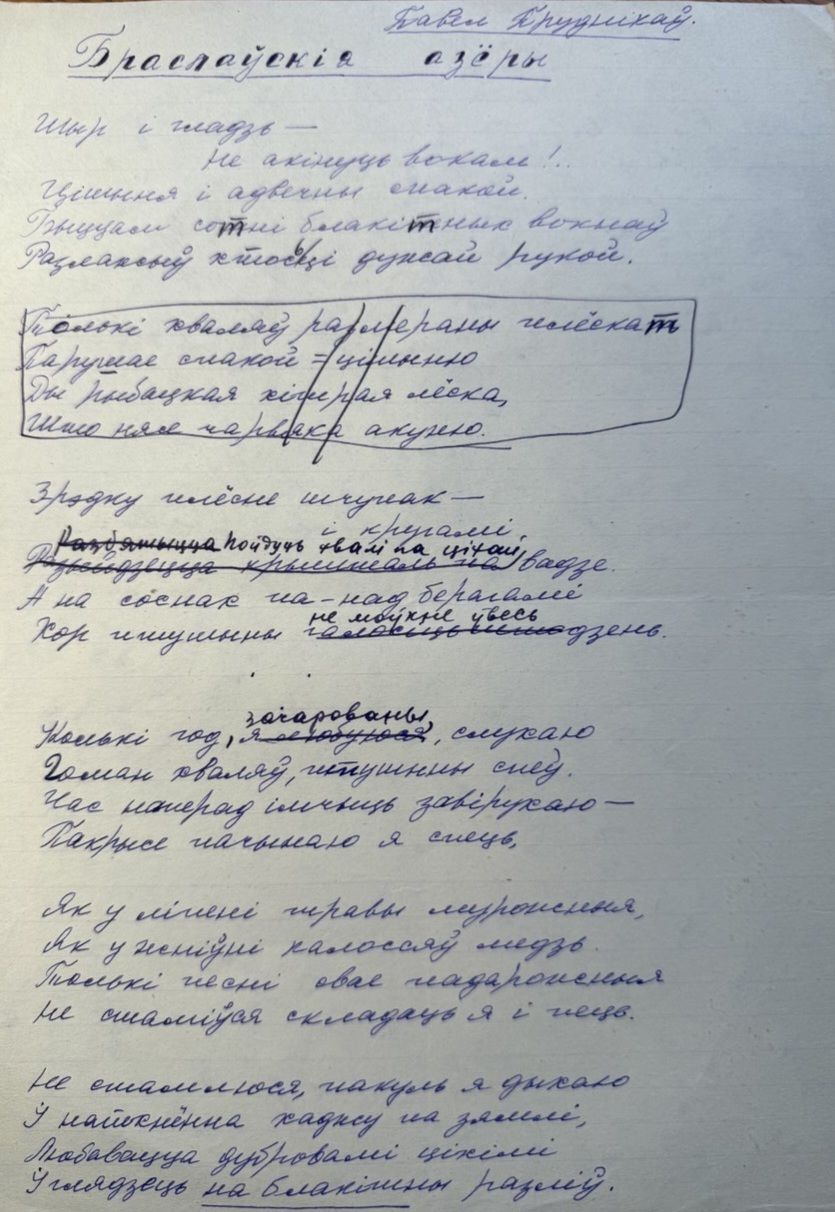 Павел Пруднікаў.
Браслаўскія азёры
Шыр і гладзь —
Не акінуць вокам!..
Цішыня і адвечны спакой.
Быццам сотні блакітных вокнаў
Разнасцяў хтосьці дужай рукой.
Толькі хваляў размераны плёскат
Парушае спакой = цішыню
Ды рыбацкая хітрая лёска,
Што нясе чарвяка акуню.
Зрэдку плёсне шчупак —
і кругамі,
Разбяжыцца Пойдуць хвалі па ціхай
Разыйдзецца крышталь на вадзе.
А на соснах па-над берагамі
не моўкне ўвесь
Хор птушыны галосіць што дзень.
зачарованы,
Колькі год, я любуюся, слухаю
Гоман хваляў, птушыны спеў.
Час наперад імчыць завірухаю —
Пакрысе пачынаю я спець,
Як у ліпені травы мурожныя,
Як у жніўні калоссяў медзь.
Толькі песні свае падарожныя
Не стаміўся складаць я і пець.
Не стамлюся, пакуль я дыхаю
І натхнёна хаджу па зямлі,
Любавацца дубровамі ціхімі
І глядзець на блакітны разліў.